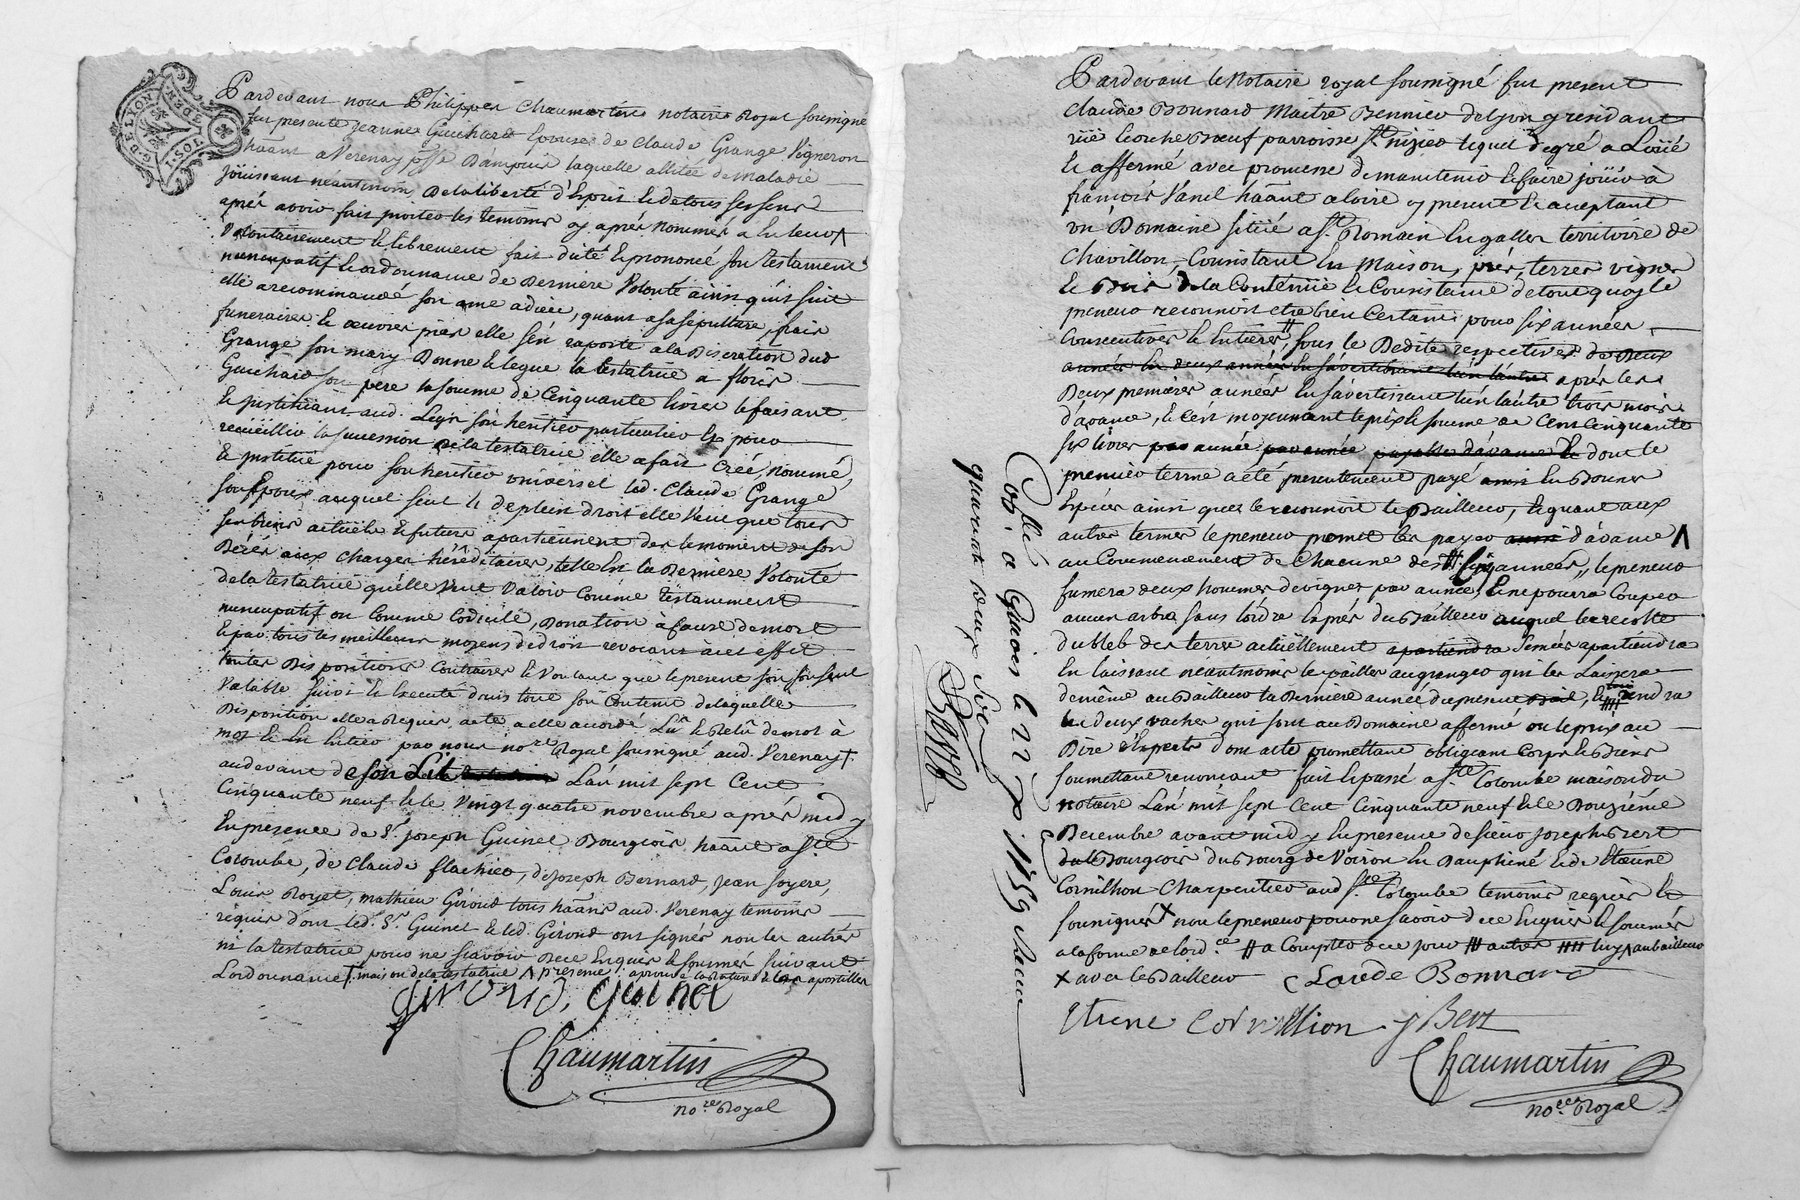 G. DE LYON
DEN. 1 SOL
Pardevant nous Philippes Chaumartin notaire Royal soussigné
fut presente jeanne Guichard Epouse de Claude Grange Vigneron
haânt a Verenay psse D'ampuis laquelle allitée de maladie
joüissant néantmoin De la liberté d'Esprit & de tous ses sens
aprés avoir fait prier les temoins cy aprés nommés a en leur ⋀
Volontairement & librement fait dicté & prononcé son testament
nuncupatif & ordonnance de Derniere Volonté ainsi qu'il suit
elle a recommandé son ame a dieu, quant a sa sépulture, frais
funeraires & œuvres pies elle s'én raporte a la Discretion dud
Grange son mary Donne & legue la testatrice a floris
Guichard son pere la somme de Cinquante livres le faisant
& jnstituant aud. Legs són heritier particulier & pour
recüeillir la succession De la testatrice elle a fait Créé nommé,
& jnstitué pour són heritier universel led. Claude Grangé
són Epoux auquel seul & de plein droit elle Veut que tous
ses biens actuels & futurs apartiennent dez le moment de son
Décés aux charges héréditaires, telle Est la Derniere Volonté
de la testatrice qu'elle Veut Valoir Comme testament
nuncupatif ou Comme Codicile, Donation à cause de mort
& par tous les meilleurs moyens de droit revocant à cet effet
toutes Dispositions Contraires & Voulant que le present son són seul
Valable suivi & Executé dans tout són Contenu de laquelle
Disposition elle a Requis acte a elle acordé Lû & Relû de mot à
mot & En Entier par nous nore Royal soussigné aud. Verenay †
audevant de són Lit L'an mil sept Cent
Cinquante neuf & le Vingt quatre novembre aprés midy
En présence de Sr. joseph Guinet Bourgeois haânt a Ste
Colombe, de Claude flachier, de joseph Bernard, jean soyere,
Louis Royet, mathieu Giroud tous haâns aud. Verenay temoins
réquis dont led. Sr. Guinet & led. Giroud ont signés non les autrés
ni la testatrice pour ne sçavoir Dece Enquis & sommés suivant
Lordonnance † maison de la testatrice ⋀ presence aprouvé la rature & les apostilles
giroud, guinet
Chaumartin
nore. Royal
Pardevant le Notaire royal soussigné fut present
Claudé Bonnard Maître Bennier de Lyon y residant
rüe Ecorche Bœuf parroisse St. nizier lequel degré a Loüé
& affermé avec promesse de maintenir & faire joüir à
françois Vanel haânt a loire cy present & acceptant
vn Domaine sitüé a St. Romain En gallee territoire de
Chavillon, Consistant En Maison, prés, terres vignes
& Bois De la Contenüe & Consistance de tout quoy le
preneur reconnoit etre bien Certain pour six années
Consecutives & Entieres #, sous le Dedite respectives de Deux
années les deux années En s'avertissant l'un l'autre aprés les
Deux premieres années En s'avertissant l'un l'autre trois mois
d'avance, & c'est moyennant le prix & somme de Cent Cinquante
six livres par année par année payable d'avance & dont le
premier terme a été presentement payé En Bonnes
Espéces ainsi que le reconnoit le Bailleur, & quant aux
autres termes le preneur promet les payer aussi d'avance ⋀
au Commencement de Chacune des # six années, le preneur
fumera deux hommés de vignes par année, & ne pourra Couper
aucun arbre sans l'ordre Exprés du Bailleur auquel la recolte
du bled des terres actuellement apartiendra semées apartiendra
En laissant néantmoins les pailles au granger qui les Laissera
de même au Bailleur la Derniere année du present Bail, & rendra
les deux vaches qui sont au Domaine affermé ou le prix au
Dire d'Experts dont acte promettant obligeant Corps & Biens
soumettant renoncant fait & passé a Ste Colombe maison du
notaire L'an mil sept Cent Cinquante neuf & le Douziéme
Decembre avant midy En presence de sieur joseph Bert
Bourgeois du Bourg de Voiron En Dauphiné & de Etienne
Cornilhon Charpentier aud Ste Colombe temoins requis &
soussignés X non le preneur pour ne savoir dece Enquis & sommés
a la forme de lord.ce # a Compter de ce jour # autres #### luy ⋀ au bailleur
X avec le Bailleur Claude Bonnard
Etiene Cornillion J Bert
Chaumartin
nore. Royal
Collé a Givors le 22 Xbre 1759 Recu
quarante deux sols